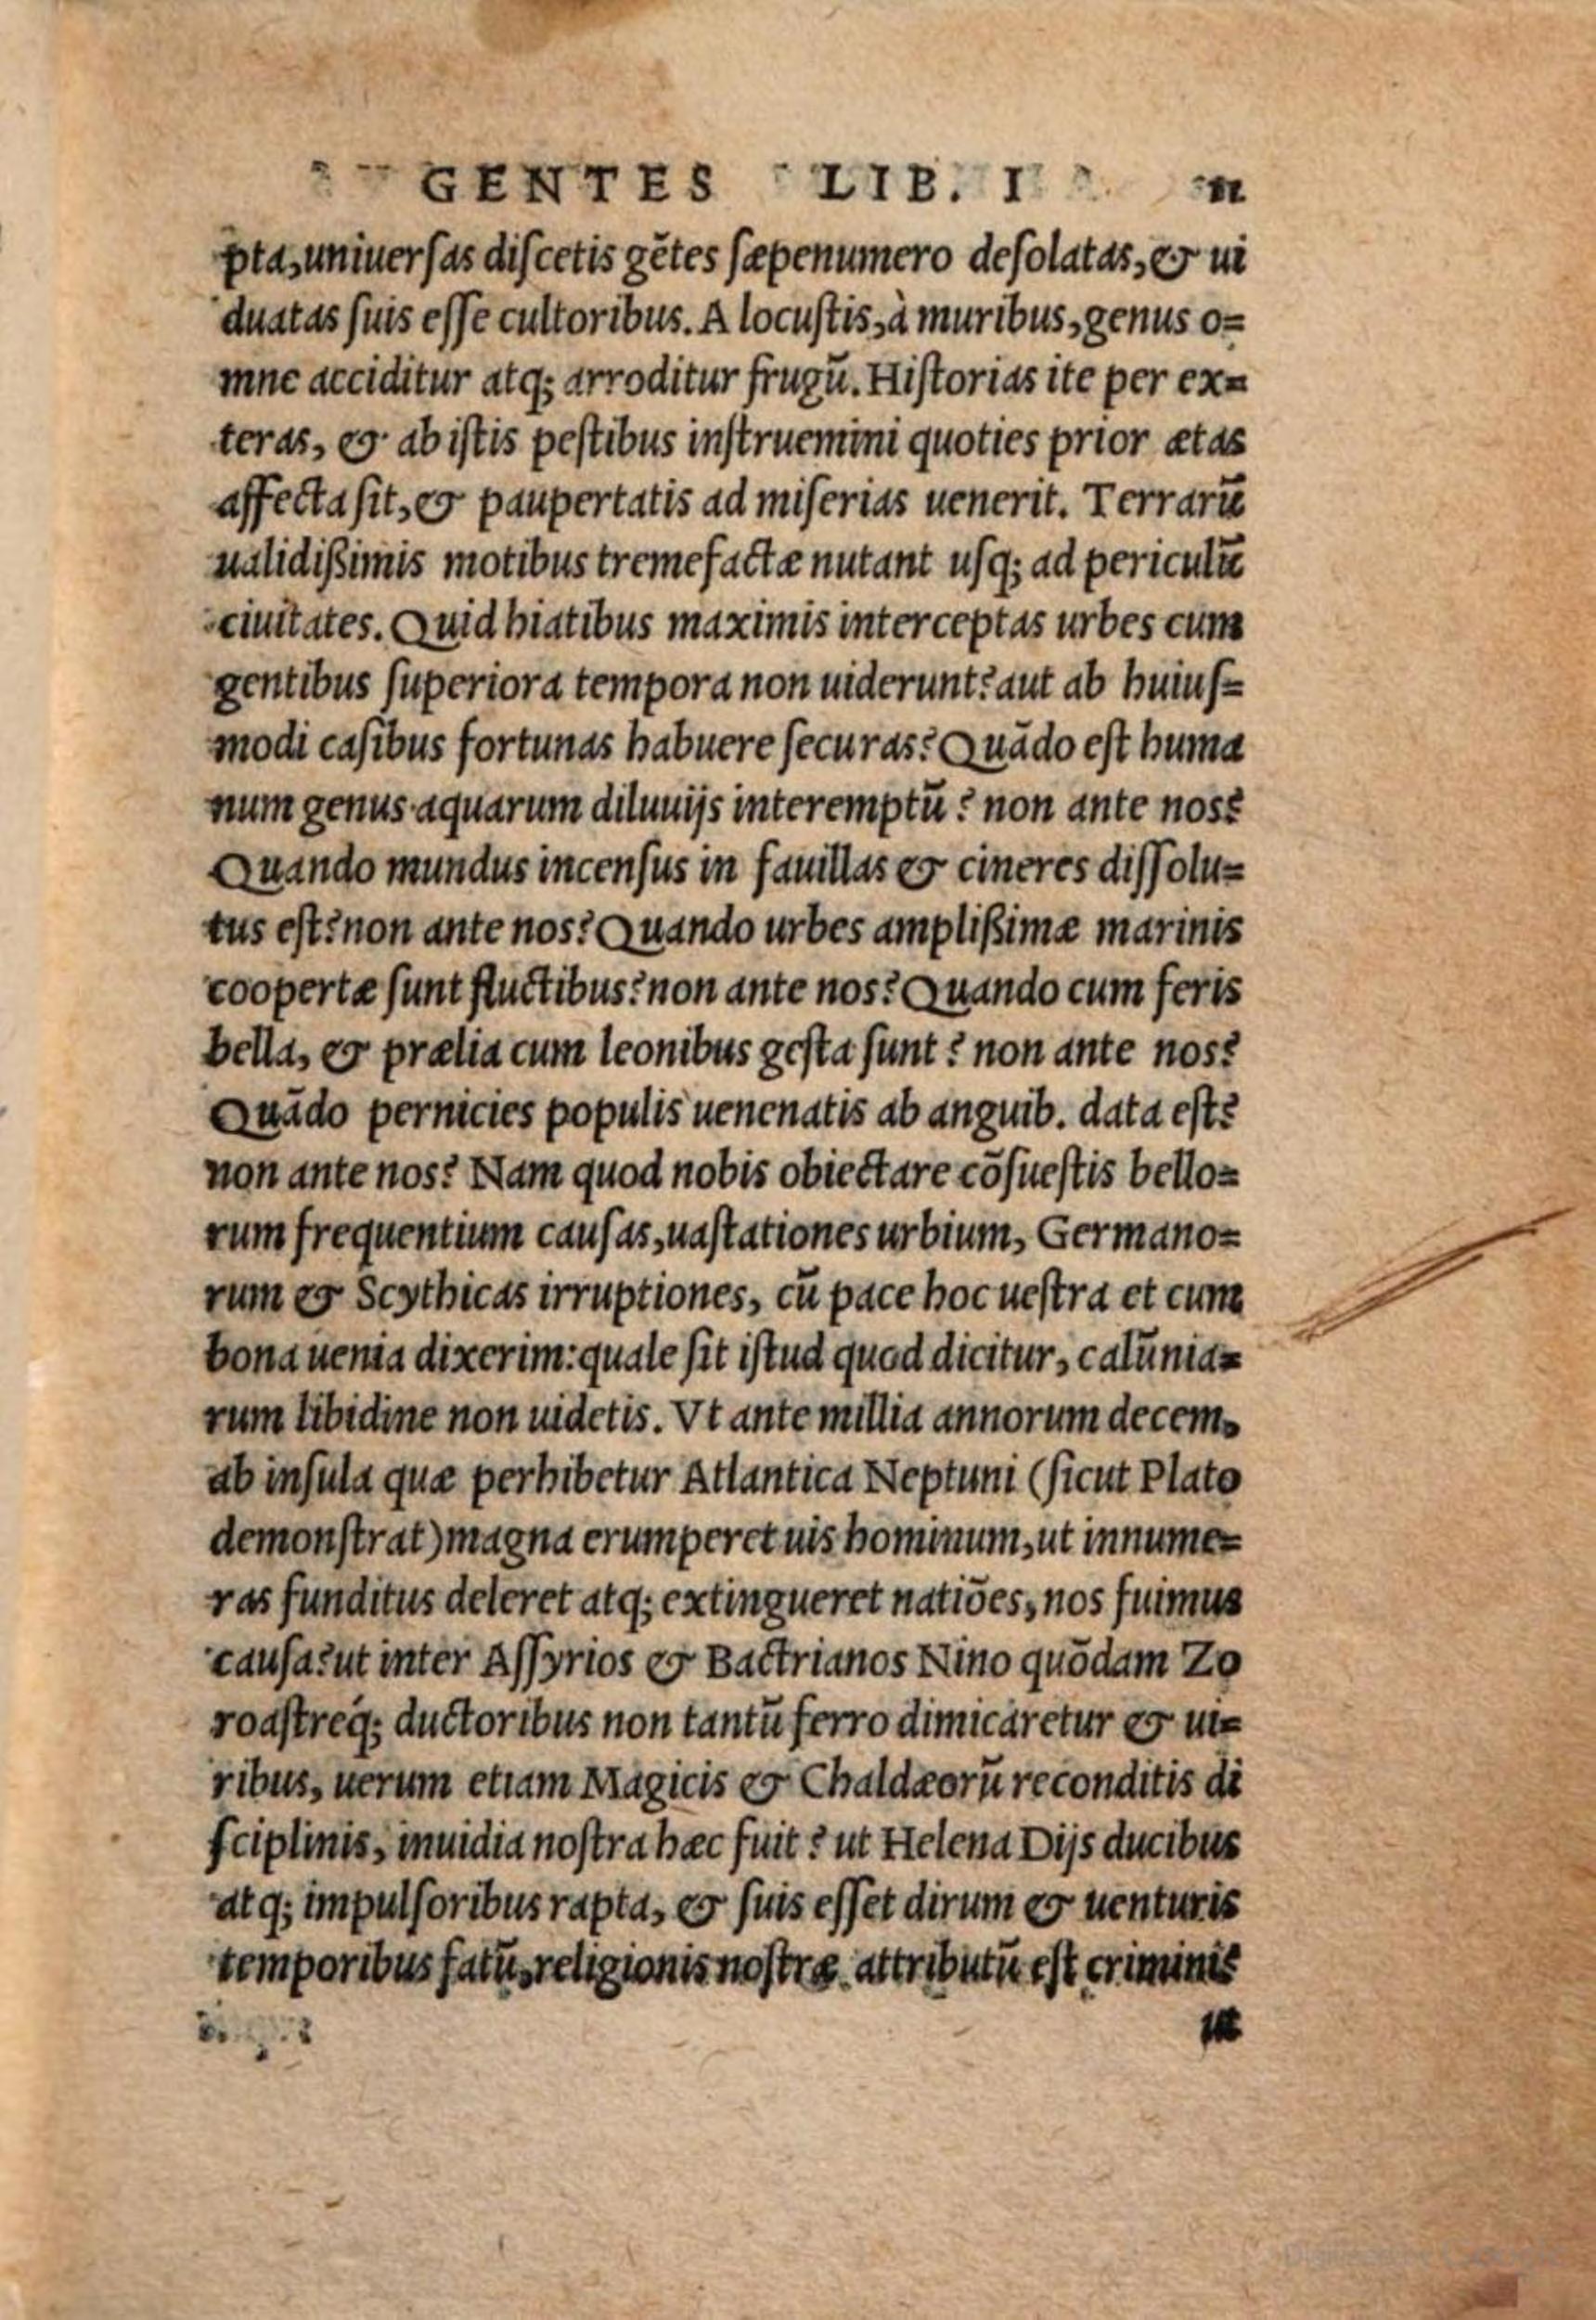 GENTES LIB. I 11
pta, uniuersas discetis gētes sæpenumero desolatas, & ui
duatas suis esse cultoribus. A locustis, à muribus, genus o=
mne acciditur atq; arroditur frugū. Historias ite per ex=
teras, & ab istis pestibus instruemini quoties prior ætas
affecta sit, & paupertatis ad miserias uenerit. Terrarū
ualidißimis motibus tremefactæ nutant usq; ad periculū
ciuitates. Quid hiatibus maximis interceptas urbes cum
gentibus superiora tempora non uiderunt? aut ab huius=
modi casibus fortunas habuere securas? Quādo est huma
num genus aquarum diluuijs interemptū? non ante nos?
Quando mundus incensus in fauillas & cineres dissolu=
tus est? non ante nos? Quando urbes amplißimæ marinis
coopertæ sunt fluctibus? non ante nos? Quando cum feris
bella, & prælia cum leonibus gesta sunt? non ante nos?
Quādo pernicies populis uenenatis ab anguib. data est?
non ante nos? Nam quod nobis obiectare cōsuestis bello=
rum frequentium causas, uastationes urbium, Germano=
rum & Scythicas irruptiones, cū pace hoc uestra et cum
bona uenia dixerim: quale sit istud quod dicitur, calūnia=
rum libidine non uidetis. Vt ante millia annorum decem,
ab insula quæ perhibetur Atlantica Neptuni (sicut Plato
demonstrat) magna erumperet uis hominum, ut innume=
ras funditus deleret atq; extingueret natiōes, nos fuimus
causa? ut inter Assyrios & Bactrianos Nino quōdam Zo
roastreq́; ductoribus non tantū ferro dimicaretur & ui=
ribus, uerum etiam Magicis & Chaldæorū reconditis di
sciplinis, inuidia nostra hæc fuit? ut Helena Dijs ducibus
atq; impulsoribus rapta, & suis esset dirum & uenturis
temporibus fatū, religionis nostræ attributū est criminis